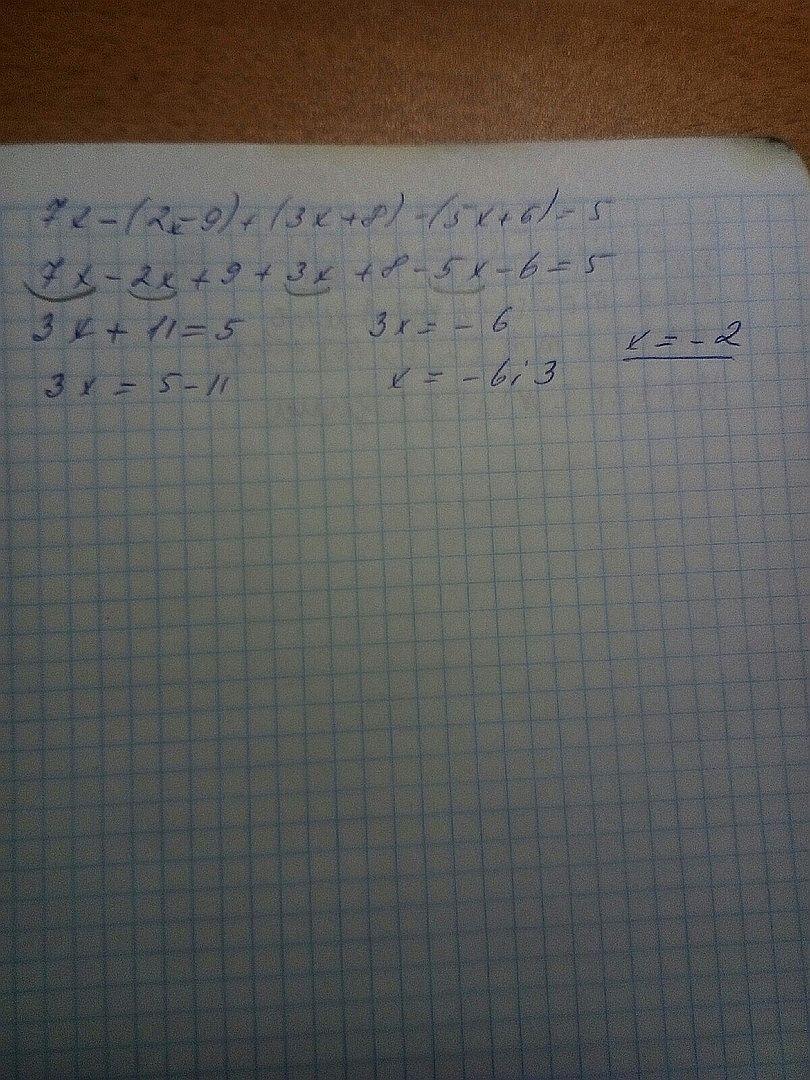 7x-(2x-9)+(3x+8)-(5x+6)=5
7x-2x+9+3x+8-5x-6=5
3x+11=5
3x=5-11
3x=-6
x=-6:3
x=-2